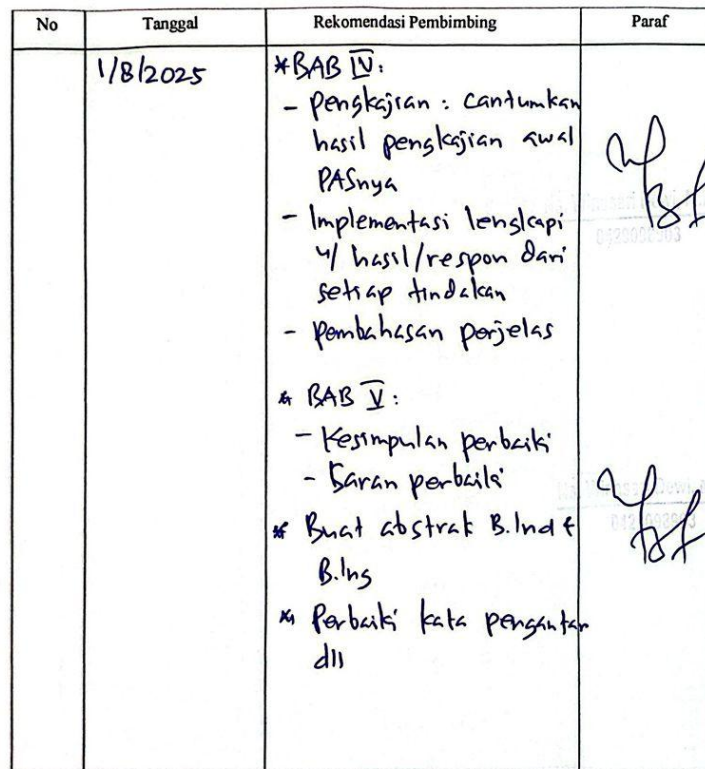 No Tanggal Rekomendasi Pembimbing Paraf
1/8/2025 * BAB IV:
- Pengkajian : cantumkan
hasil pengkajian awal
PASnya
- Implementasi lengkapi
u/ hasil/respon dari
setiap tindakan
- Pembahasan perjelas
* BAB V:
- Kesimpulan perbaiki
- Saran perbaiki
* Buat abstrak B.Ind &
B.Ing
* Perbaiki kata pengantar
dll